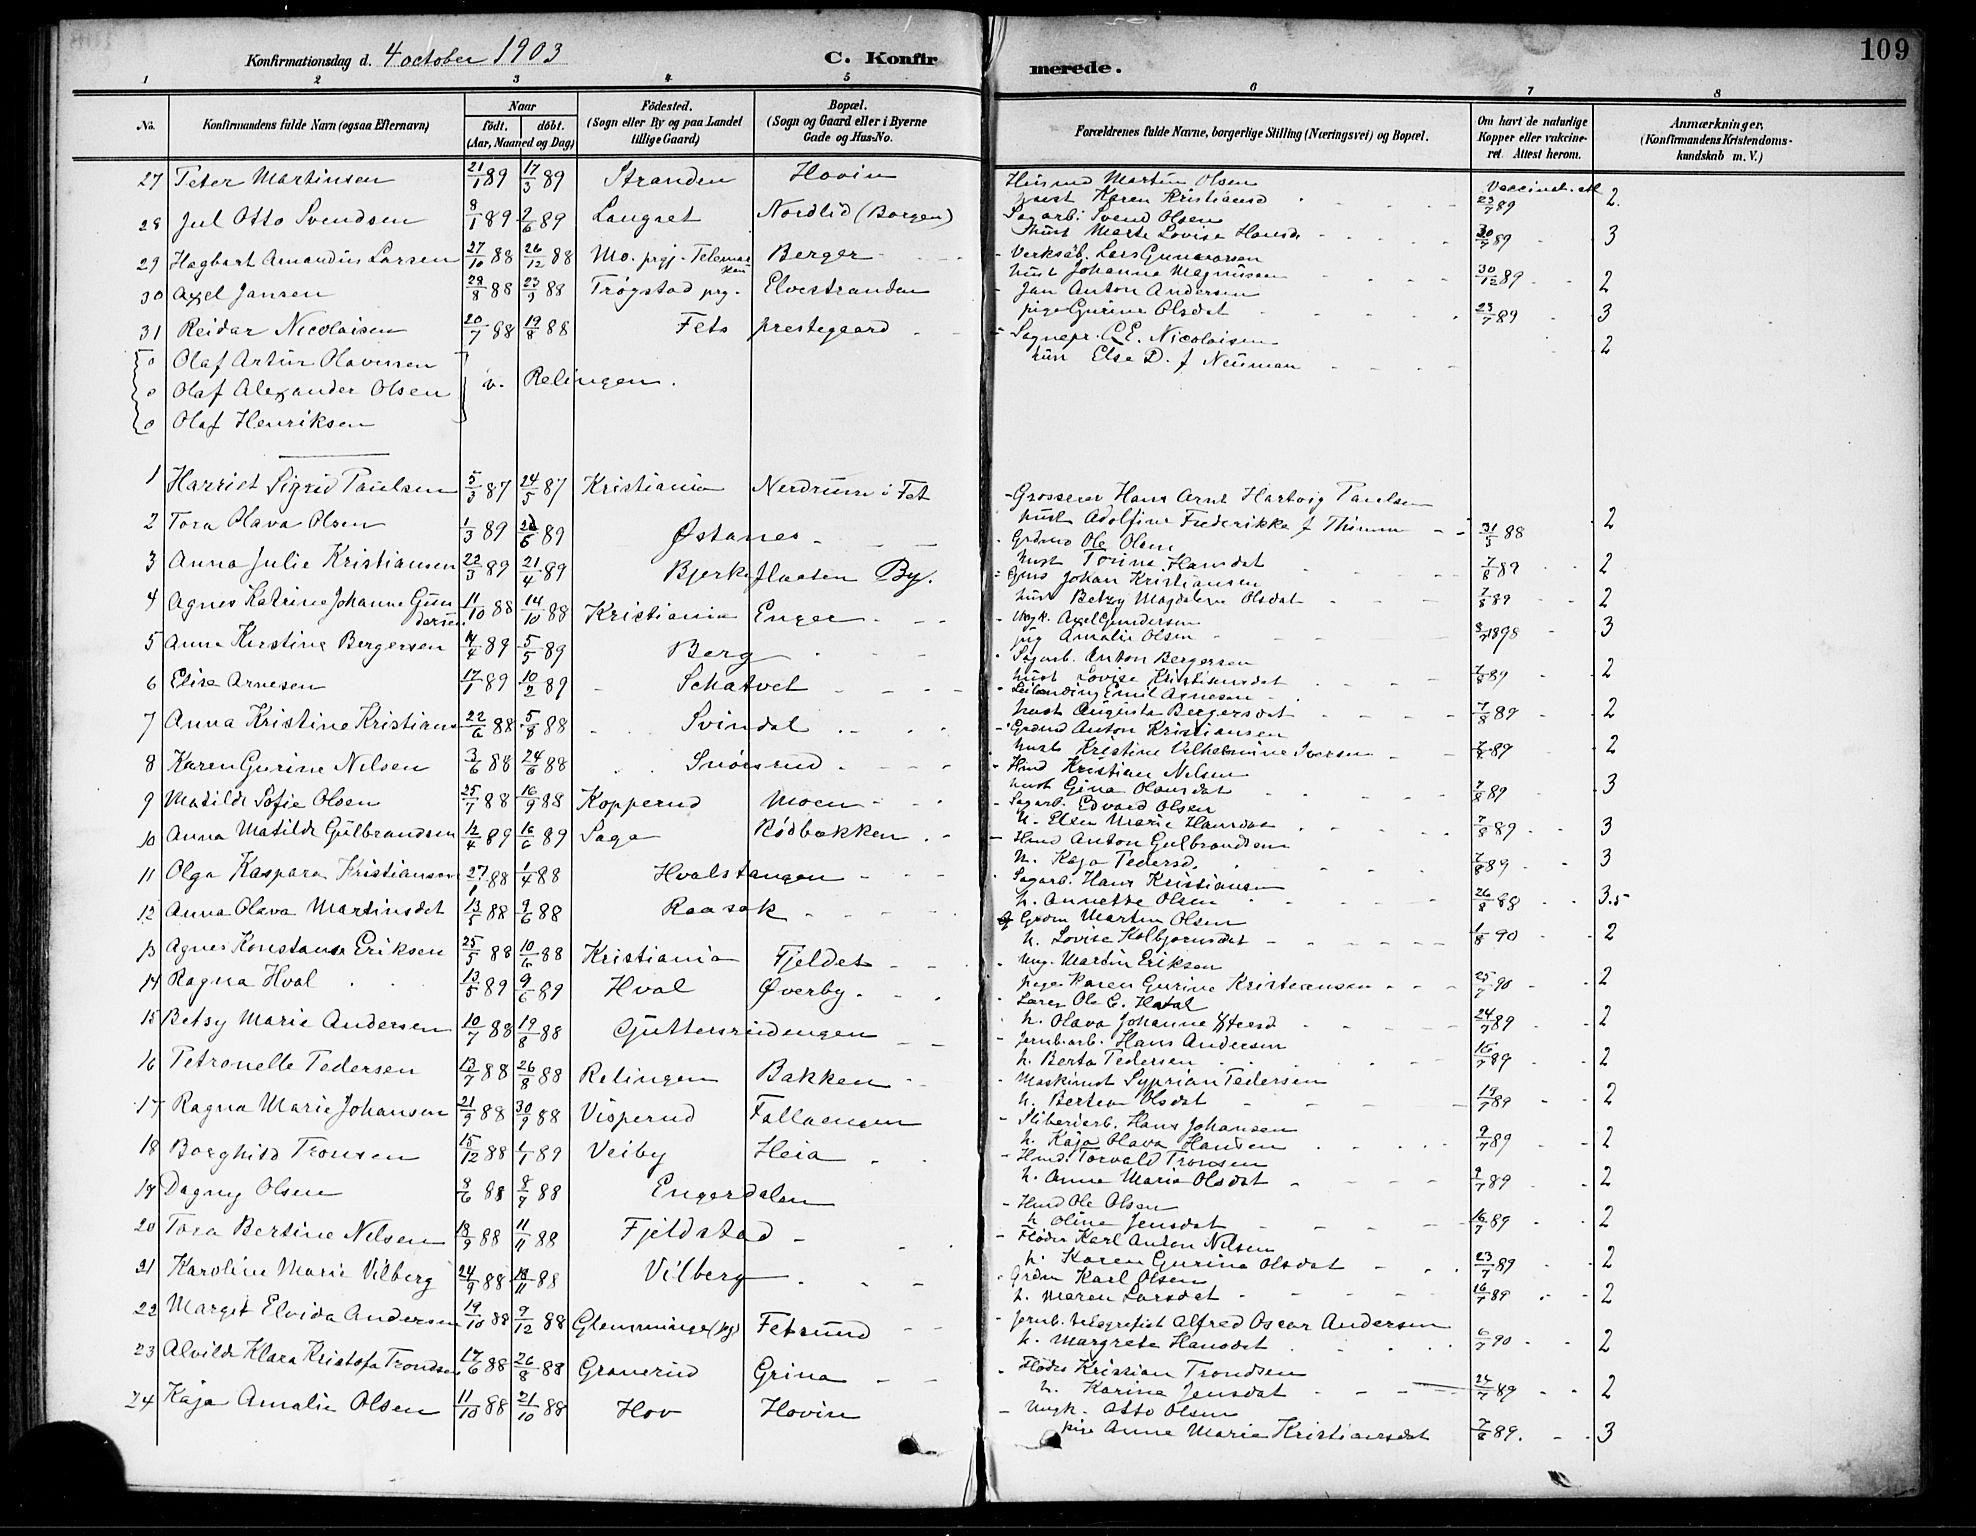 109
Konfirmationsdag d. 4 october 1903 C. Konfirmerede.
1 2 3 4 5 6 7 8
No. Konfirmandens fulde Navn (ogsaa Efternavn) Naar födt. döbt. (Aar, Maaned og Dag) Födested. (Sogn eller By og paa Landet tillige Gaard) Bopæl. (Sogn og Gaard eller i Byerne Gade og Hus-No. Forældrenes fulde Navne, borgerlige Stilling (Næringsvei) og Bopæl. Om havt de naturlige Kopper eller vakcineret Attest herom. Anmærkninger, (Konfirmandens Kristendomskundskab m. V.)
27 Peter Martinsen 21/1 89 17/3 89 Stranden Hovin Husmd Martin Olsen Karen Kristiansd 23/7 89 2.
28 Jul Otto Svendsen 8/1 89 2/6 89 Langset Nordlid (Borgen) Sagarb. Svend Olsen Hust Marte Lovise Hansd 30/7 89 3
29 Hagbart Amandus Larsen 27/10 88 26/12 88 Mo. prgj. Telemarken Berger Verksarb. Lars Gunnarsen hust Johanne Magnussen 30/12 89 2
30 Axel Jansen 28/8 88 23/9 88 Trøgstad prg. Elvestranden Jan Anton Andersen pige Gurine Olsdat 23/7 89 3
31 Reidar Nicolaisen 20/7 88 19/8 88 Fets prestegaard Sognepr. C. E. Nicolaisen hust Else D. f Neuman 2
0 Olaf Artur Olavesen
0 Olaf Alexander Olsen v. Relingen.
0 Olaf Henriksen
1 Harriet Sigrid Paulsen 5/3 87 24/5 87 Kristiania Nerdrum i Fet Grosserer Hans Arnt Hartvig Paulsen hust Adolfine Frederikke f Thimm 31/5 88 2
2 Tora Olava Olsen 1/3 89 89 Østanes Grdmd Ole Olsen hust Torine Hansdat 7/8 89 2
3 Anna Julie Kristiansen 22/3 89 21/4 89 Bjerkeflaeten By. Johan Kristiansen hust Betzy Magdalene Olsdat 7/8 89 2
4 Agnes Katrine Johanne Gundersen 11/10 88 14/10 88 Kristiania Enger Ungk. Axel Gundersen pig Amalie Olsen 1898 3
5 Anna Kirstine Bergersen 14/4 89 5/5 89 Berg Sagarb. Anton Bergersen hust Lovise Kristiansdat 7/8 89 2
6 Elise Arnesen 17/1 89 10/2 89 Schatvet Leilænding Emil Arnesen hust Augusta Bergersdat 7/8 89 2
7 Anna Kristine Kristians 22/6 88 5/8 88 Svindal Grdmd Anton Kristiansen hust Kristine Vilhelmine Iversen 7/8 89 2
8 Karen Gurine Nilsen 3/6 88 24/6 88 Snörsrud Hmd Kristian Nilsen hust Gina Olausdat 7/8 89 3
9 Matilde Sofie Olsen 25/7 88 16/9 88 Kopperud Moen Sagarb. Edvard Olsen h. Elen Marie Hansdat 7/8 89 3
10 Anna Matilde Gulbrandsen 12/4 89 16/6 89 Saga Rödbækken Hmd Anton Gulbrandsen h. Kaja Pedersd. 7/8 89 3
11 Olga Kaspara Kristiansen 27/1 88 1/4 88 Hvalstangen Sagarb. Hans Kristiansen h. Annette Olsen 26/8 88 3.5
12 Anna Olava Martinsdat 13/5 88 9/6 88 Raasok Grdm Martin Olsen h. Lovise Kolbjørnsdat 1/8 90 2
13 Agnes Konstanse Eriksen 25/5 88 10/6 88 Kristiania Fjeldet Ung. Martin Eriksen pige Karen Gurine Kristiansen 25/7 90 2
14 Ragna Hval 13/5 89 9/6 89 Hval Øverby Lærer Ole E. Hval h. Olava Johanne 24/7 89 2
15 Betsy Marie Andersen 10/7 88 19/8 88 Guttersrudengen Jernb.arb. Hans Andersen h. Berta Pedersen 16/7 89 2
16 Petronelle Pedersen 13/7 88 26/8 88 Relingen Bakken Maskinist Syprian Pedersen h. Bertea Olsdat 19/7 89 2
17 Ragna Marie Johansen 21/9 88 30/9 88 Visperud Fallaengen Sliberiarb. Hans Johansen h. Kaja Olava Hansen 9/7 89 2
18 Borghild Tronsen 15/12 88 1/1 89 Veiby Heia Hmd. Torvald Tronsen h. Anne Marie Olsdat 9/7 89 2
19 Dagny Olsen 8/6 88 8/7 88 Engerdalen Hmd Ole Olsen h. Oline Jensdat 16/7 89 2
20 Tora Bertine Nilsen 18/9 88 11/11 88 Fjeldstad Fløder Karl Anton Nilsen h. Karen Gurine Olsdat 23/7 89 2
21 Karoline Marie Vilberg 24/9 88 18/11 88 Vilberg Grdm Karl Olsen h. Maren Larsdat 16/7 89 2
22 Margit Elvida Andersen 19/10 88 9/12 88 Glemminge (prg) Fetsund Jernb. telegrafist Alfred Oscar Andersen h. Margrete Hansdat 6/7 90 2
23 Alvilde Klara Kristofa Trondsen 17/6 88 26/8 88 Granerud Grina Fløder Kristian Trondsen h. Karine Jensdat 24/7 89 2
24 Kaja Amalie Olsen 11/10 88 21/10 88 Hov Hovin Ungk. Otto Olsen pige Anne Marie Kristiansdat 7/8 89. 3